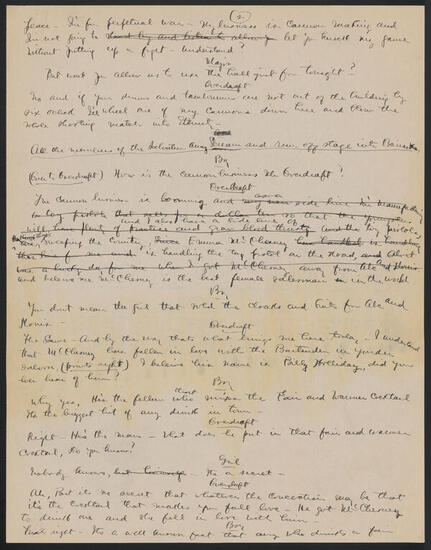 (2)
peace - I'm for perpetual war - My business is Cannon Making and
I'm not going to stand by and let you knock my game
without putting up a fight - understand?
Major
But wont you allow us to use this hall just for tonight?
Overdraft
No and if your drums and tambourines are not out of the building by
six oclock I'll wheel one of my cannons down here and blow the
whole shooting match into Eternity -
(All the members of the Salvation Army Scream and run off stage into
Boy
(Goes to Overdraft) How is the cannon business Mr Overdraft?
Overdraft
The cannon business is booming and
and I also have a side line of
and the toy pistols,
are sweeping the country, Emma McChesney
is handling the toy pistol on the Road, and
was a lucky day for me when I got McChesney away from Abe and
and believe me McChesney is the best female salesman in the world
Boy
You dont mean the girl that sold the Cloaks and Suits for Abe and
Overdraft
The Same - And by the way thats what brings me here today. I understand
that McChesney has fallen in love with the Bartender in yonder
saloon (points right) I believe his name is Billy Holliday, did you
ever hear of him?
Boy
Why yes, He's the fellow who mixes the Fair and Warmer Cocktail
Its the biggest hit of any drink in town -
Overdraft
Right - He's the man - What does he put in that fair and warmer
Cocktail, Do you know?
Girl
Nobody knows, Its a secret -
Overdraft
Ah, But its no secret that whatever the concoction may be that
it's the Cocktail that makes you fall in love - He got McChesney
to drink one and she fell in love with him -
Boy
That's right - Its a well known fact that any who drinks a